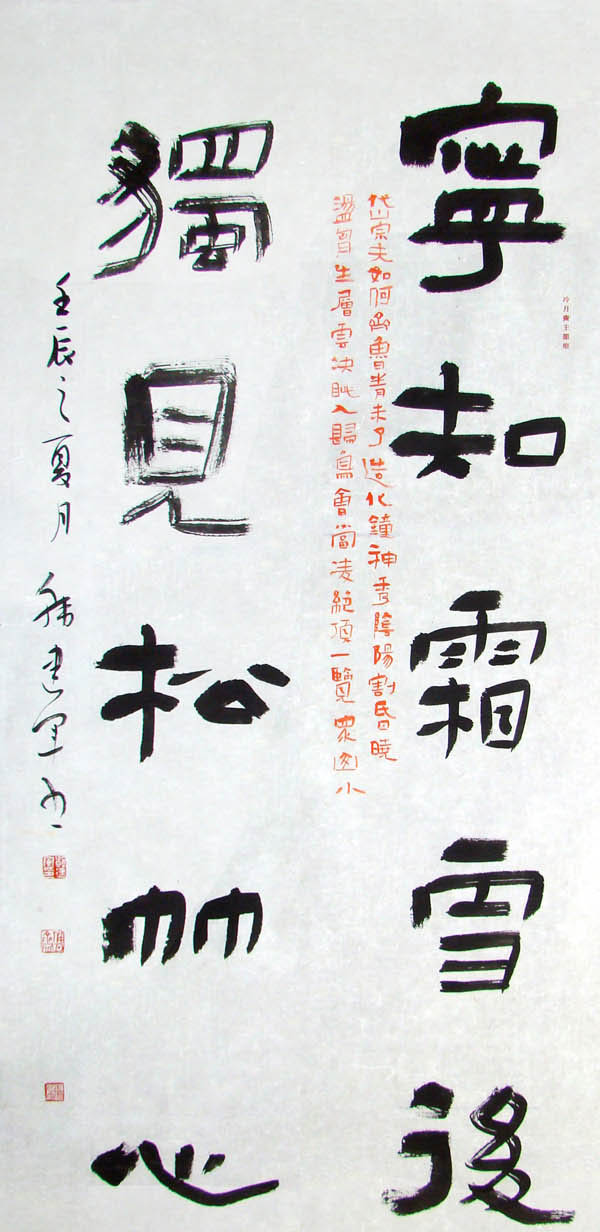 冷月齋主
寧知霜雪後
岱宗夫如何齊魯青未了造化鐘神秀陰陽割昏曉
盪胷生層雲決眦入歸鳥會當凌絕頂一覽眾山小
獨見松竹心
壬辰之夏月